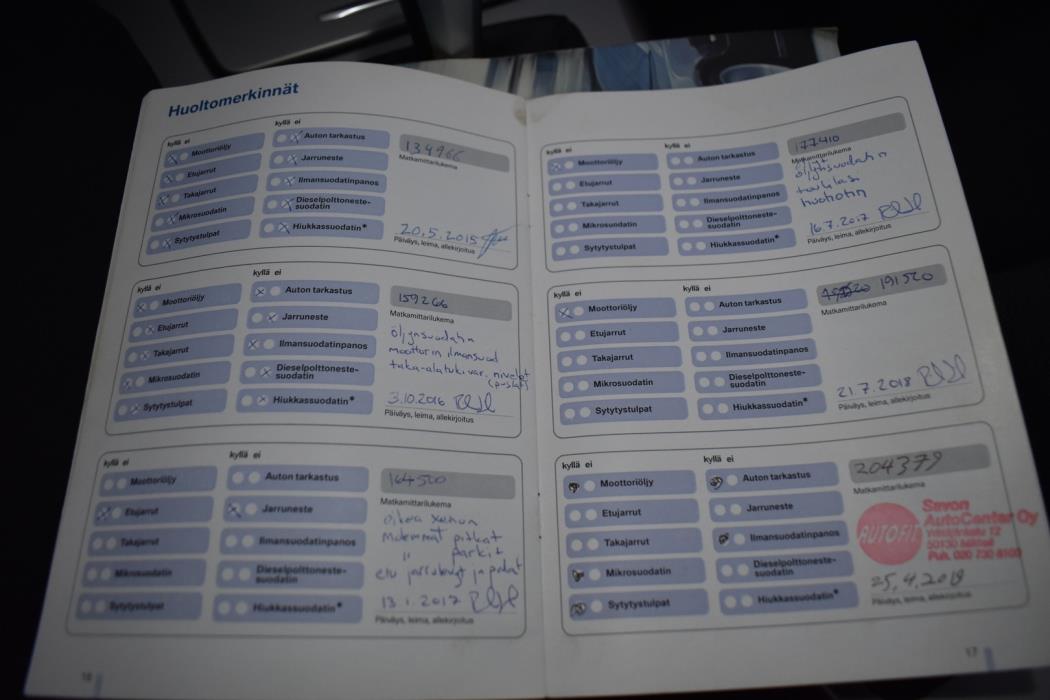 Huoltomerkinnät
kyllä ei
kyllä ei
Moottoriöljy
Etujarrut
Takajarrut
Mikrosuodatin
Sytytystulpat
Auton tarkastus
Jarruneste
Ilmansuodatinpanos
Dieselpolttoneste-
suodatin
Hiukkassuodatin*
134966
Matkamittarilukema
20.5.2015
Päiväys, leima, allekirjoitus
kyllä ei
kyllä ei
Moottoriöljy
Etujarrut
Takajarrut
Mikrosuodatin
Sytytystulpat
Auton tarkastus
Jarruneste
Ilmansuodatinpanos
Dieselpolttoneste-
suodatin
Hiukkassuodatin*
159266
Matkamittarilukema
öljynsuodatin
moottorin ilmansuod
taka-alatukivar. nivelet
3.10.2016
Päiväys, leima, allekirjoitus
kyllä ei
kyllä ei
Moottoriöljy
Etujarrut
Takajarrut
Mikrosuodatin
Sytytystulpat
Auton tarkastus
Jarruneste
Ilmansuodatinpanos
Dieselpolttoneste-
suodatin
Hiukkassuodatin*
164500
Matkamittarilukema
oikea xenon
pitkät
" parkit
etu jarrulevyt ja palat
13.1.2017
Päiväys, leima, allekirjoitus
16
kyllä ei
kyllä ei
Moottoriöljy
Etujarrut
Takajarrut
Mikrosuodatin
Sytytystulpat
Auton tarkastus
Jarruneste
Ilmansuodatinpanos
Dieselpolttoneste-
suodatin
Hiukkassuodatin*
177410
Matkamittarilukema
öljynsuodatin
huohotin
16.7.2017
Päiväys, leima, allekirjoitus
kyllä ei
kyllä ei
Moottoriöljy
Etujarrut
Takajarrut
Mikrosuodatin
Sytytystulpat
Auton tarkastus
Jarruneste
Ilmansuodatinpanos
Dieselpolttoneste-
suodatin
Hiukkassuodatin*
191520
Matkamittarilukema
21.7.2018
Päiväys, leima, allekirjoitus
kyllä ei
kyllä ei
Moottoriöljy
Etujarrut
Takajarrut
Mikrosuodatin
Sytytystulpat
Auton tarkastus
Jarruneste
Ilmansuodatinpanos
Dieselpolttoneste-
suodatin
Hiukkassuodatin*
204379
Matkamittarilukema
AUTOFIT
Savon
AutoCenter Oy
12
50130 Mikkeli
Puh. 020 730 8100
25.4.2019
Päiväys, leima, allekirjoitus
17